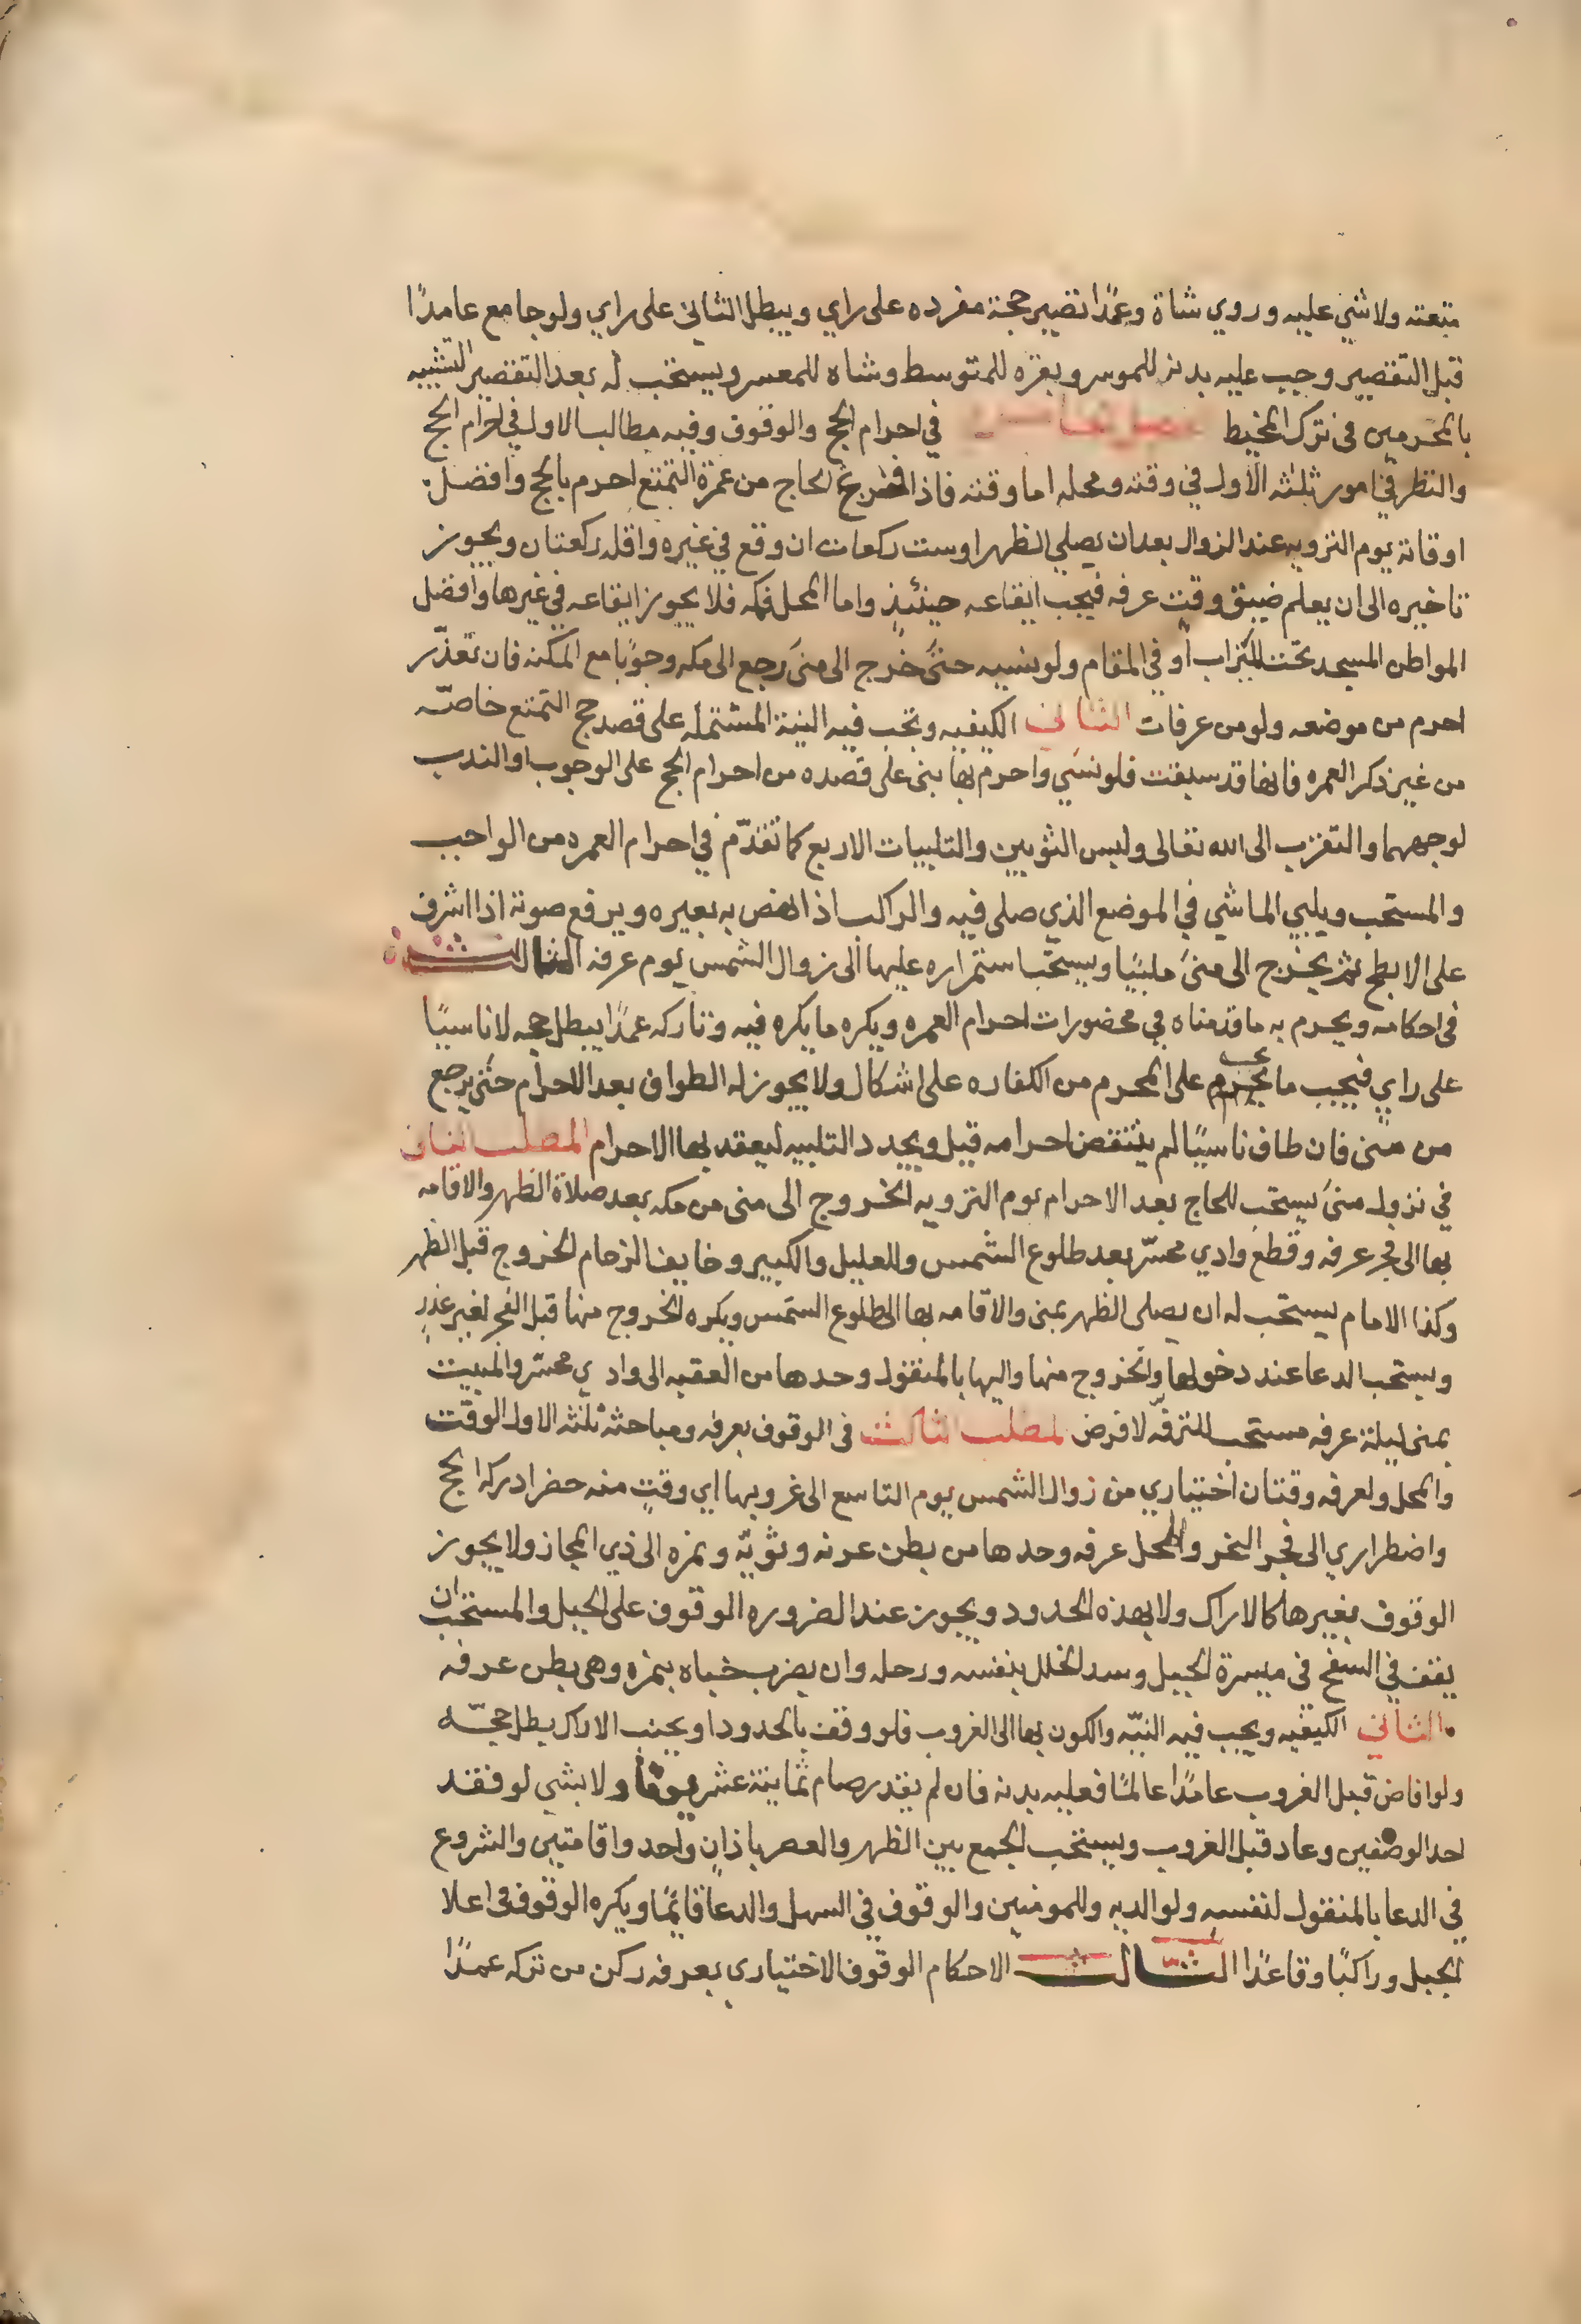 متعته ولا شي عليه وروي شاة وعمدًا تصير حجة مفرده على راي ويبطل الثاني على راي ولو جامع عامدًا
قبل التقصير وجب عليه بدنه للموسر وبقره للمتوسط وشاه للمعسر ويستحب له بعد التقصير التشبيه
بالمحرمين فى ترك المخيط الفصل الخامس في احرام الحج والوقوف وفيه مطالب الاول في احرام الحج
والنظر في امور ثلثه الاول في وقته ومحله اما وقته فاذا فرغ الحاج من عمرة التمتع احرم بالحج وافضل
اوقاته يوم الترويه عند الزوال بعد ان يصلي الظهر او ست ركعات ان وقع في غيره واقله ركعتان ويجوز
تاخيره الى ان يعلم ضيق وقت عرفه فيجب ايقاعه حينئذٍ واما المحل فمكه فلا يجوز ايقاعه في غيرها وافضل
المواطن المسجد تحت الميزاب او في المقام ولو نسيه حتى خرج الى منى رجع الى مكه وجوبًا مع المكنه فان تعذّر
احرم من موضعه ولو من عرفات الثاني الكيفيه وتجب فيه النية المشتمله على قصد حج التمتع خاصّه
من غير ذكر العمره فانها قد سبقت فلو نسي واحرم بها بنى على قصده من احرام الحج على الوجوب او الندب
لوجههما والتقرب الى الله تعالى ولبس الثوبين والتلبيات الاربع كما تقدّم في احرام العمره من الواجب
والمستحب ويلبي الماشي في الموضع الذي صلى فيه والراكب اذا نهض به بعيره ويرفع صوتة اذا اشرف
على الابطح ثم يخرج الى منىً ملبيًا ويستحب استمراره عليها الى زوال الشمس يوم عرفه الثالث
فى احكامه ويحرم به ما قدمناه في محضورات احرام العمره ويكره ما يكره فيه وتاركه عمدًا يبطل حجه لا ناسيًا
على راي فيجب ما يجب على المحرم من الكفاره على اشكال ولا يجوز له الطواف بعد الاحرام حتى يرجع
من منى فان طاف ناسيًا لم ينتقض احرامه قيل ويجدد التلبيه ليعقد بها الاحرام المطلب الثاني
في نزول منىً يستحب للحاج بعد الاحرام يوم الترويه الخروج الى منى من مكه بعد صلاة الظهر والاقامه
بها الى فجر عرفه وقطع وادي محسّر بعد طلوع الشمس وللعليل والكبير وخايف الزحام الخروج قبل الظهر
وكذا الامام يستحب له ان يصلى الظهر بمنى والاقامه بها الى طلوع الشمس ويكره الخروج منها قبل الفجر لغير عذرٍ
ويستحب الدعا عند دخولها والخروج منها واليها بالمنقول وحدها من العقبه الى وادي محسّر والمبيت
بمنى ليلة عرفه مستحب للترفّه لا فرض المطلب الثالث فى الوقوف بعرفه ومباحثه ثلثه الاول الوقت
والمحل ولعرفه وقتان اختياري من زوال الشمس يوم التاسع الى غروبها اي وقتٍ منه حضر ادرك الحج
واضطراري الى فجر النحر والمحل عرفه وحدها من بطن عرنه وثويّه ونمره الى ذي المجاز ولا يجوز
الوقوف بغيرها كالاراك ولا بهذه الحدود ويجوز عند الضروره الوقوف على الجبل والمستحب ان
يقف في السفح فى ميسرة الجبل وسد الخلل بنفسه ورحله وان يضرب خباه بنمره وهى بطن عرفه
الثاني الكيفيه ويجب فيه النيّه والكون بها الى الغروب فلو وقف بالحدود او بجنب الاراك بطل حجّه
ولو افاض قبل الغروب عامدًا عالمًا فعليه بدنه فان لم يقدر صام ثمانية عشر يومًا ولا شي لو فقد
احد الوصفين وعاد قبل الغروب ويستحب الجمع بين الظهر والعصر باذانٍ واحد واقامتين والشروع
في الدعا بالمنقول لنفسه ولوالديه وللمومنين والوقوف في السهل والدعا قائمًا ويكره الوقوف فى اعلا
الجبل وراكبًا وقاعدًا الثالث الاحكام الوقوف الاختيارى بعرفه ركن من تركه عمدًا